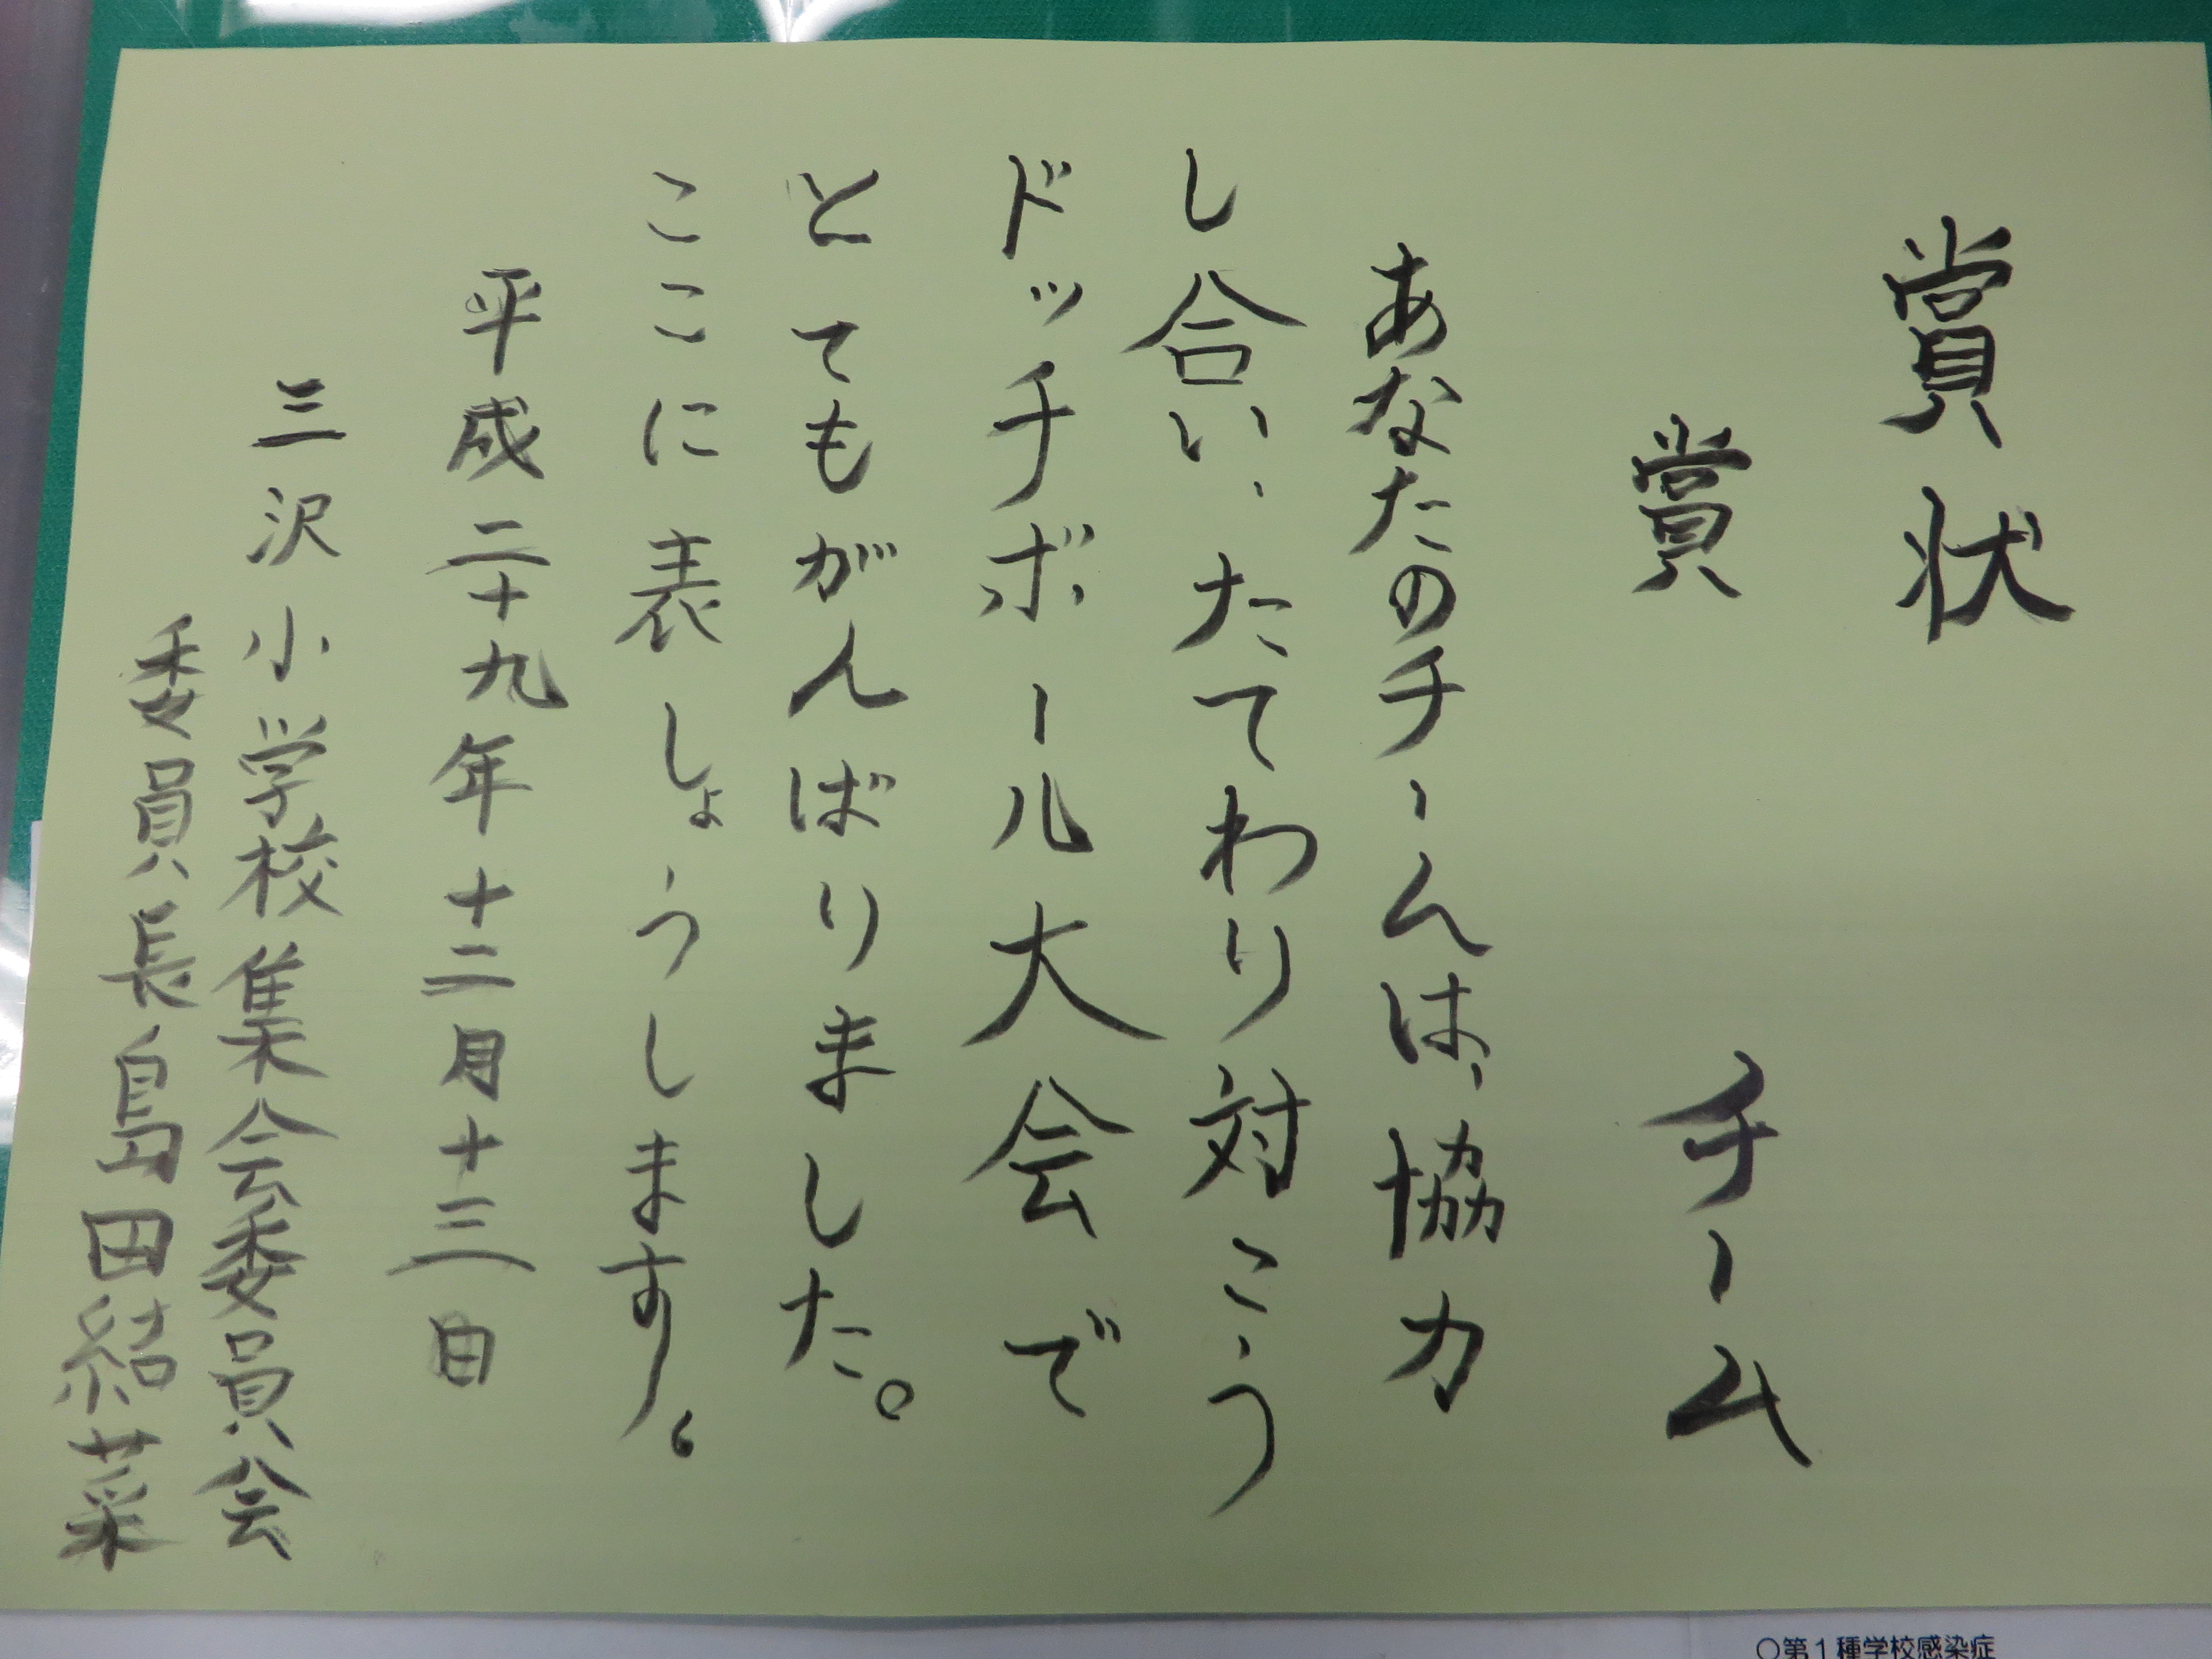 賞状
賞　チーム
あなたのチームは、協力
し合い、たてわり対こう
ドッチボール大会で
とてもがんばりました。
ここに表しょうします。
平成二十九年十二月十三日
三沢小学校集会委員会
委員長島田結菜
○第1種学校感染症